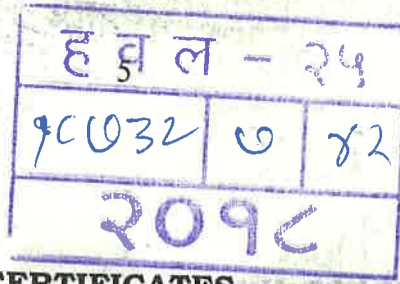 हवल - २५
5
१८७३२ ७ ४२
२०१८
CERTIFICATES